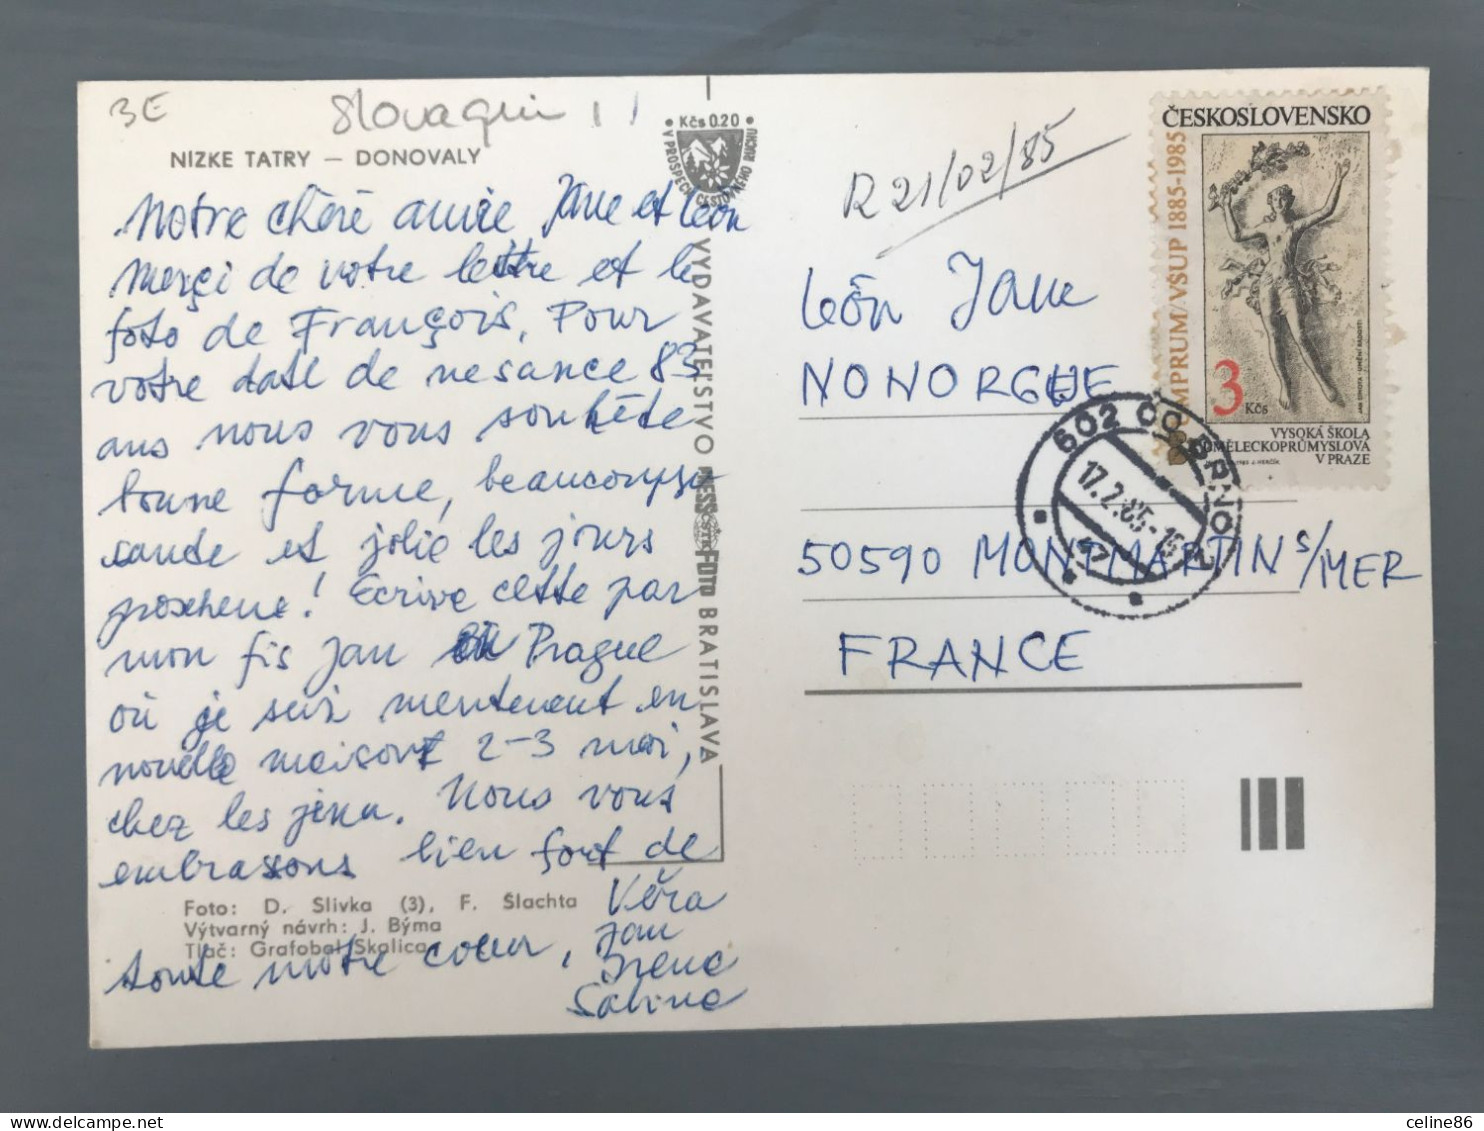 3E
Slovaquie
NIZKE TATRY – DONOVALY
Notre chère amie Jane et León
Merçi de votre lettre et le
foto de François, Pour
votre date de nesance 83
ans nous vous souhète
bonne forme, beaucoup
sande et jolie les jours
proxhene! Ecrive cette par
mon fis Jan Prague
où je suis mentenent en
nouvelle maison 2-3 moi,
chez les jena. Nous vous
embrasons bien fort de
toute notre coeur,
Věra
Jan
Irena
Sabine
Foto: D. Slivka (3), F. Šlachta
Výtvarný návrh: J. Býma
Tlač: Grafobal Skalica
• Kčs 0.20 •
V PROSPECH CESTOVNÉHO RUCHU
VYDAVATEĽSTVO
FOTO BRATISLAVA
R 21/02/85
León Jane
NONORGUE
50590 MONTMARTIN S/MER
FRANCE
ČESKOSLOVENSKO
UMPRUM/VŠUP 1885-1985
3 Kčs
VYSOKÁ ŠKOLA
UMĚLECKOPRŮMYSLOVÁ
V PRAZE
602 00 BRNO 2
17.2.85-15
47
celine86